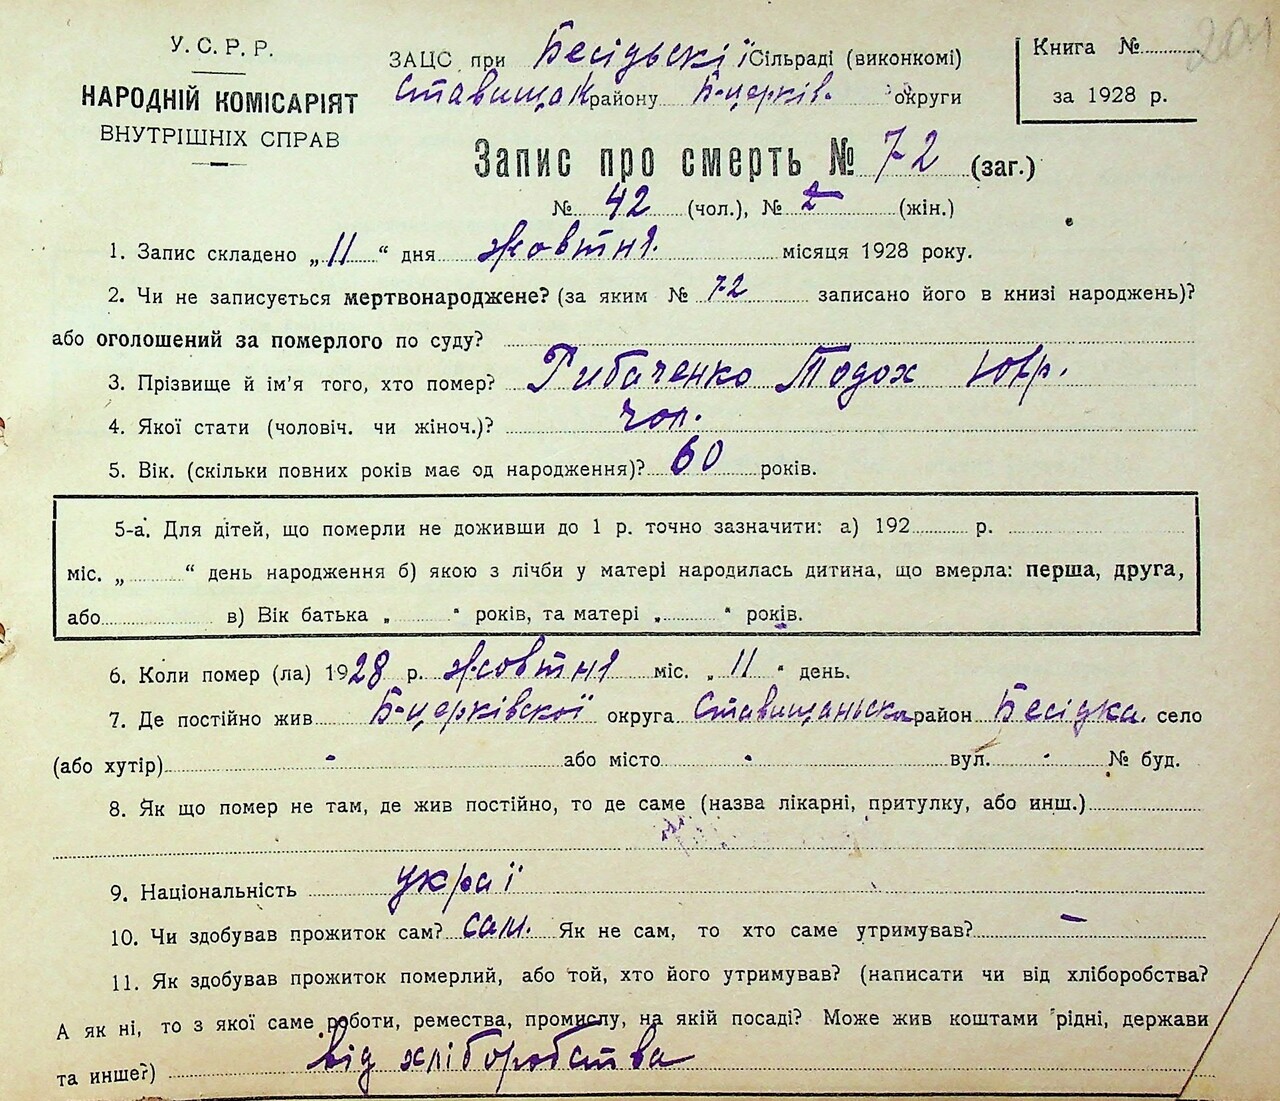 201
У. С. Р. Р.
НАРОДНІЙ КОМІСАРІЯТ
ВНУТРІШНІХ СПРАВ
ЗАЦС при Бесідьскі їСільраді (виконкомі)
Ставищак району Б-церків. округи
Книга №
за 1928 р.
Запис про смерть № 72 (заг.)
№ 42 (чол.), № (жін.)
1. Запис складено „11“ дня жовтня. місяця 1928 року.
2. Чи не записується мертвонароджене? (за яким № 72 записано його в книзі народжень)?
або оголошений за померлого по суду?
3. Прізвище й ім'я того, хто помер? Рибаченко Тодох Юхр.
4. Якої стати (чоловіч. чи жіноч.)? чол.
5. Вік. (скільки повних років має од народження)? 60 років.
5-а. Для дітей, що померли не доживши до 1 р. точно зазначити: а) 192 р.
міс. „ “ день народження б) якою з лічби у матері народилась дитина, що вмерла: перша, друга,
або в) Вік батька „ “ років, та матері „ “ років.
6. Коли помер (ла) 1928 р. жовтня міс. „11“ день.
7. Де постійно жив Б-церківскої округа Ставищаньска район Бесідка. село
(або хутір) - або місто - вул. - № буд.
8. Як що помер не там, де жив постійно, то де саме (назва лікарні, притулку, або инш.)
9. Національність украї
10. Чи здобував прожиток сам? сам. Як не сам, то хто саме утримував? –
11. Як здобував прожиток померлий, або той, хто його утримував? (написати чи від хліборобства?
А як ні, то з якої саме роботи, ремества, промислу, на якій посаді? Може жив коштами рідні, держави
та инше?) від хліборобства